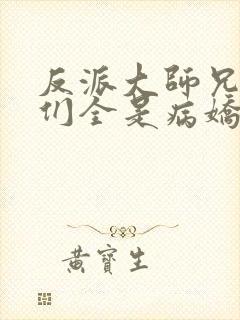 反派大師兄
们全是病嬌
黃寶生